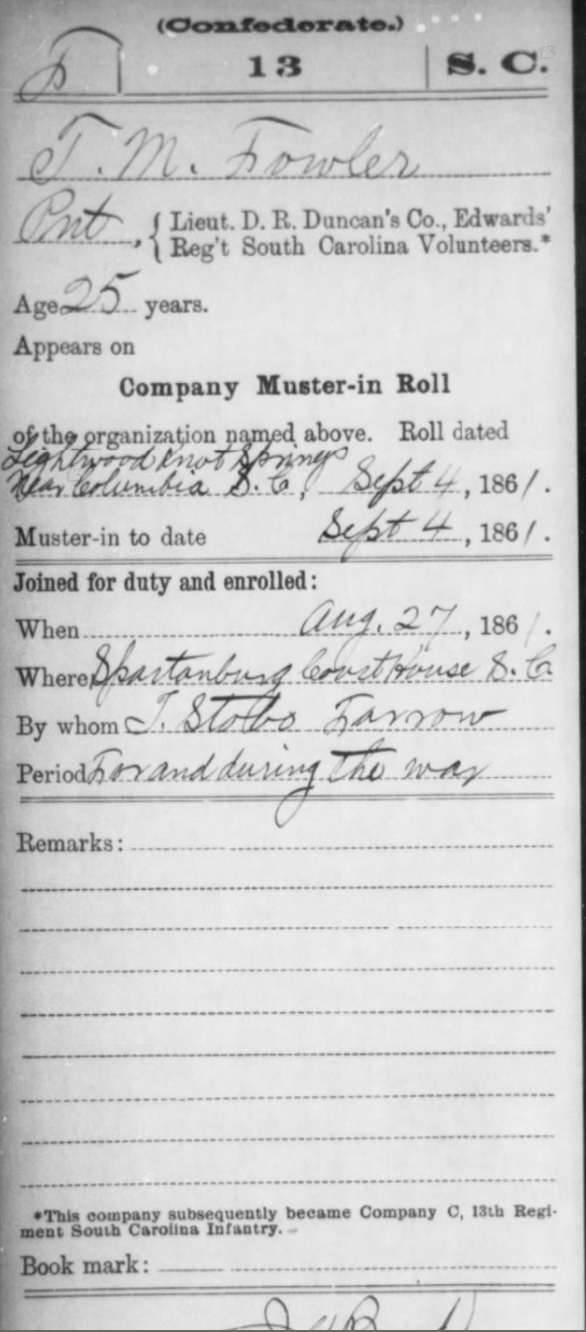 (Confederate.)
F | 13 | S. C.
T. M. Fowler
Pvt, { Lieut. D. R. Duncan's Co., Edwards'
Reg't South Carolina Volunteers.*
Age 25 years.
Appears on
Company Muster-in Roll
of the organization named above. Roll dated
Lightwood Knot Springs
Near Columbia S. C, Sept 4, 1861.
Muster-in to date Sept 4, 1861.
Joined for duty and enrolled:
When Aug. 27, 1861.
Where Spartanburg Court House S. C
By whom T. Stobo Farrow
Period For and during the war
Remarks:
*This company subsequently became Company C, 13th Regi-
ment South Carolina Infantry.
Book mark: